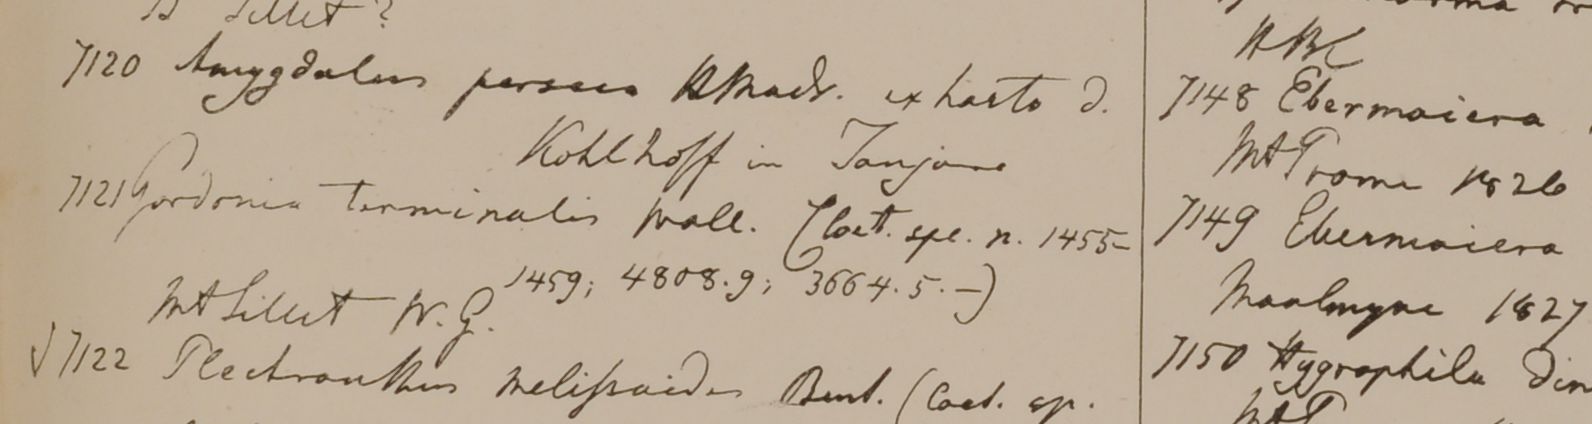 Sillet?
7120 Amygdalus persica HMadr. ex horto d.
Kohlhoff in Tanjore
7121 Gordonia terminalis Wall. (Coet. spe. n. 1455-
1459; 4808.9; 3664.5.—)
Mt Sillet W. G.
√ 7122 Plectranthus melissoides Bent. (Coet. sp.
HBC
7148 Ebermaiera
Mt Prome 1826
7149 Ebermaiera
Moalmyne 1827
7150 Hygrophila din